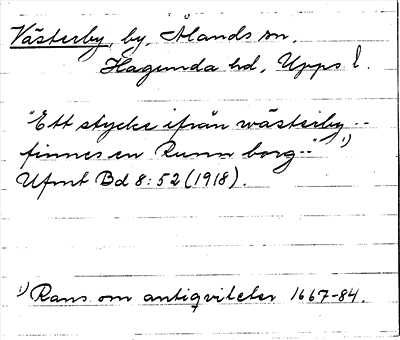 Västerby, by, Ålands sn.
Hagunda hd, Upps l.
"Ett stycke ifrån wästerby --
finnes en Runn borg --" 1)
Ufmt Bd 8:52 (1918).
1) Rans. om antiqviteter 1667-84.